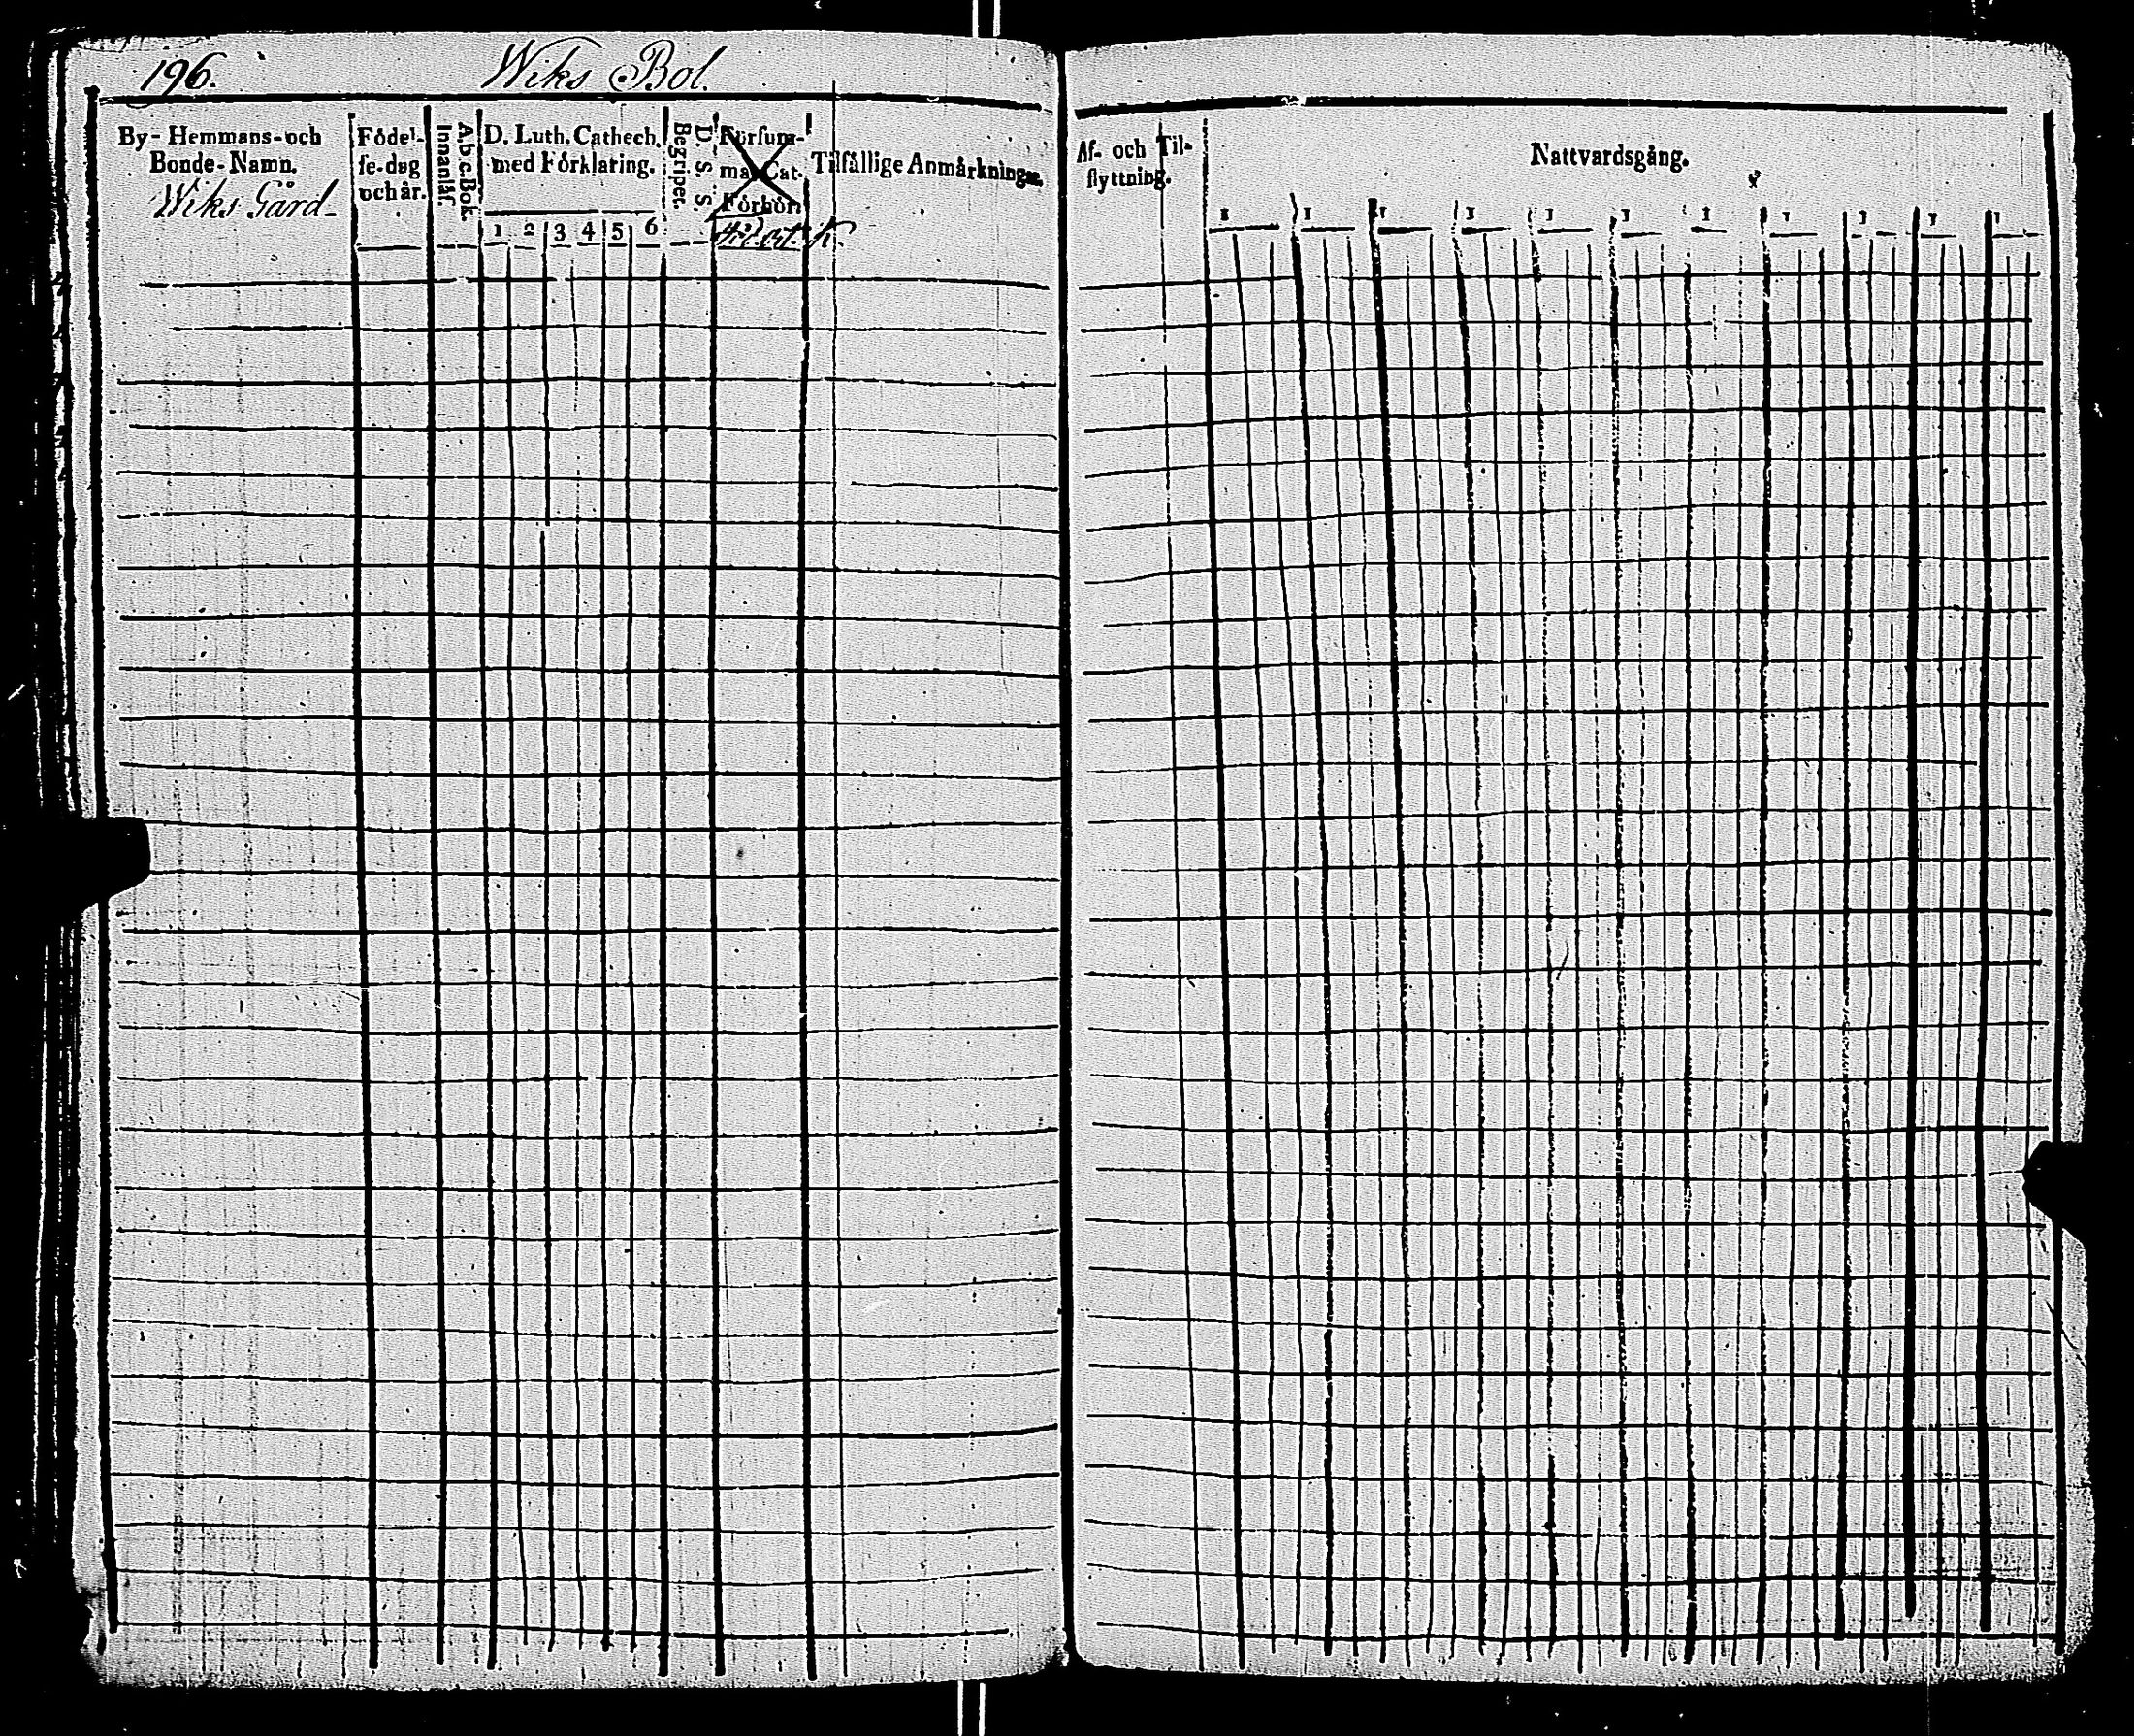 196. Wiks Bol.
By- Hemmans- och
Bonde-Namn.
Wiks Gård
Födel-
se-dag
och år.
Ab c. Bok.
Innanläs.
D. Luth. Cathech.
med Förklaring.
1 2 3 4 5 6
D. S. S.
Begriper.
Försum-
mat Cat.
Förhör.
Tilfällige Anmärkningar.
Af- och Til-
flyttning.
Nattvardsgång.